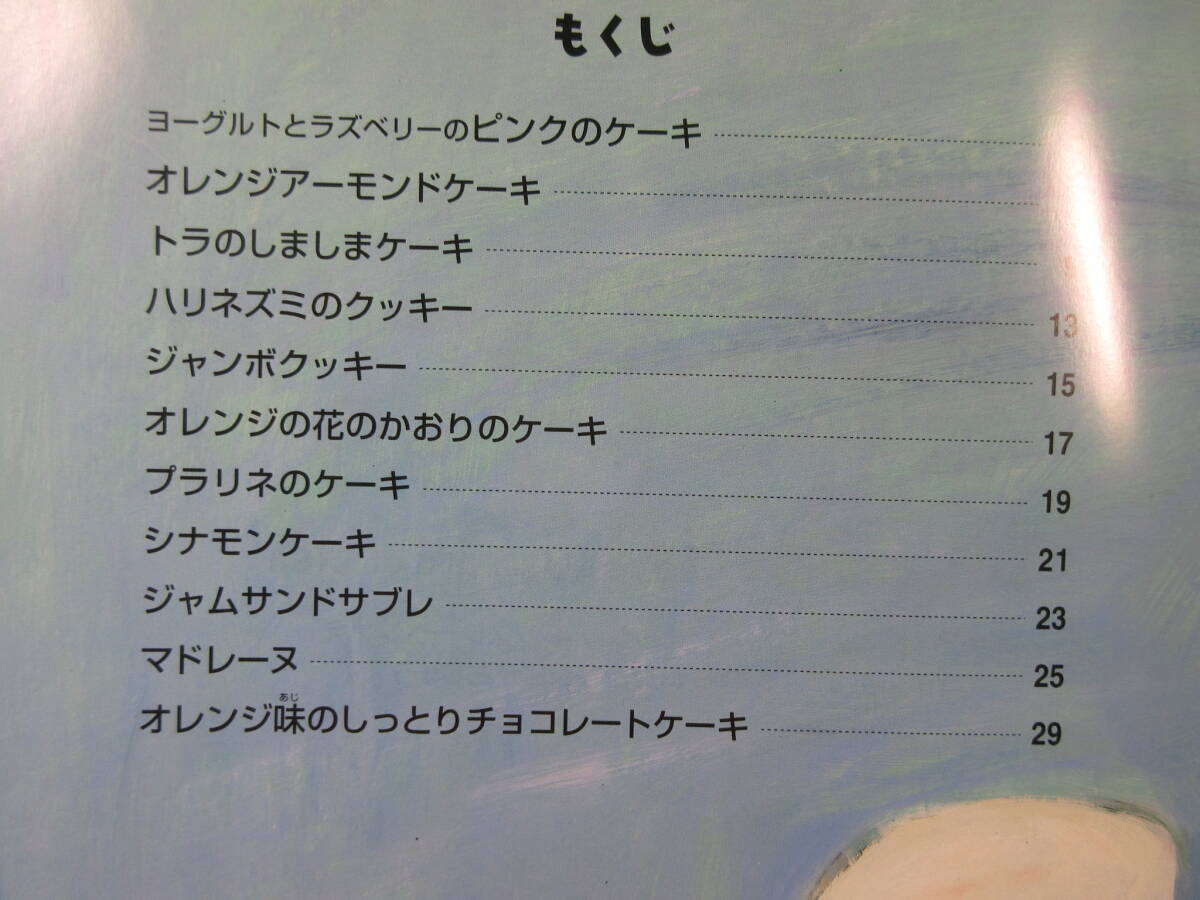 もくじ
ヨーグルトとラズベリーのピンクのケーキ
オレンジアーモンドケーキ
トラのしましまケーキ
ハリネズミのクッキー 13
ジャンボクッキー 15
オレンジの花のかおりのケーキ 17
プラリネのケーキ 19
シナモンケーキ 21
ジャムサンドサブレ 23
マドレーヌ 25
あじ
オレンジ味のしっとりチョコレートケーキ 29